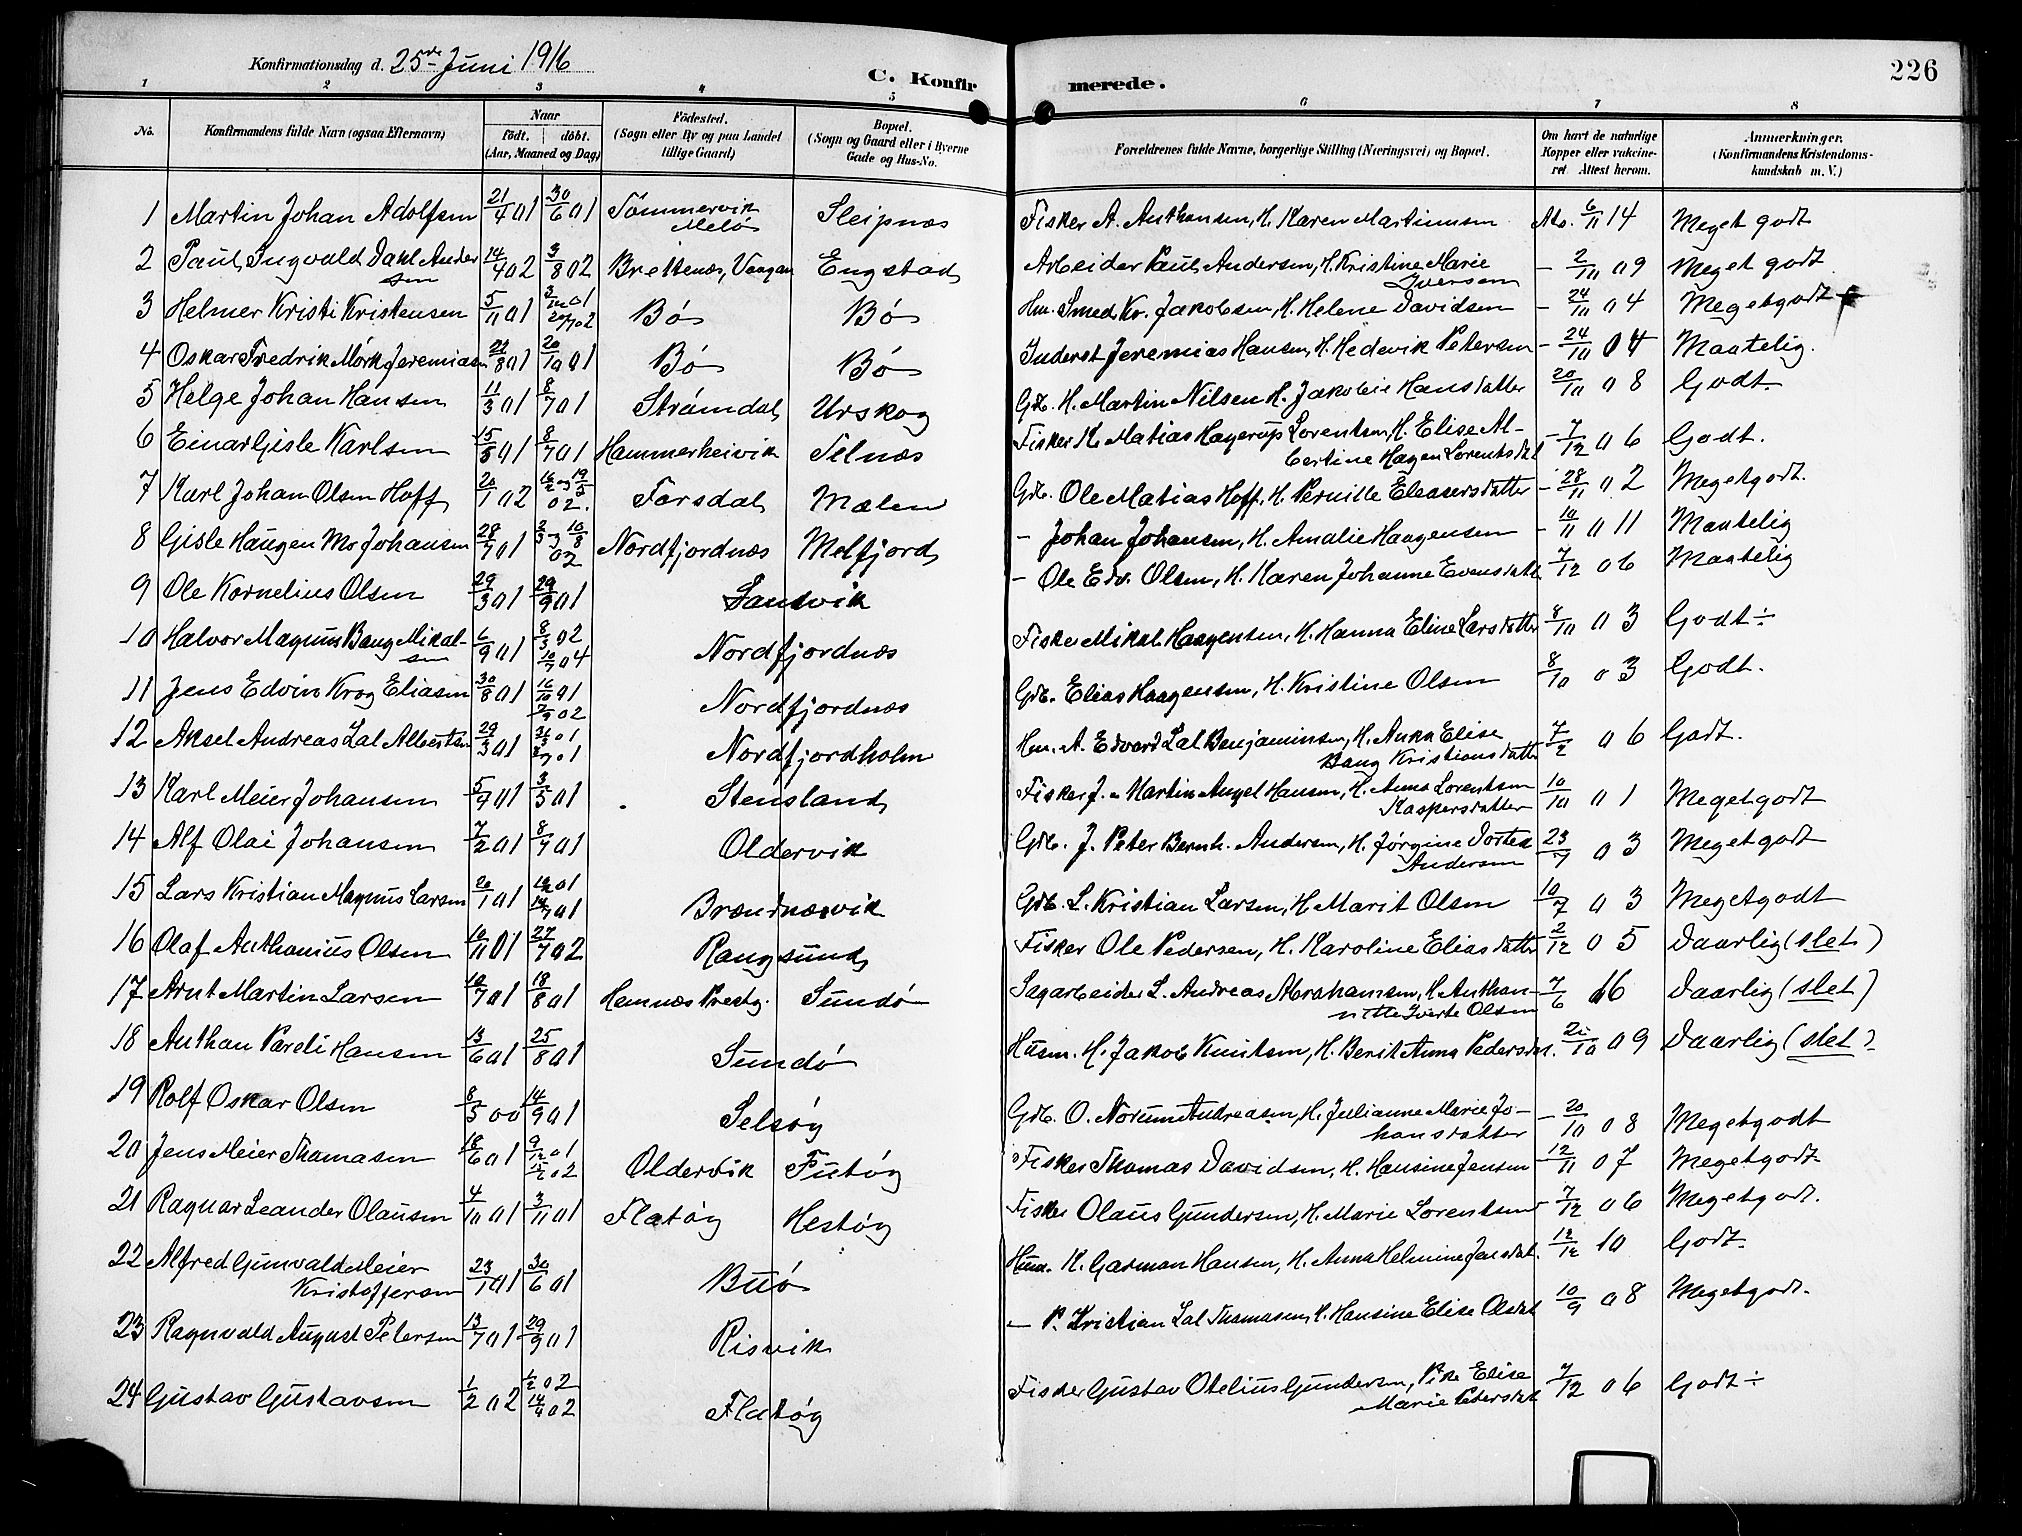 Konfirmationsdag d. 25de Juni 1916
C. Konfirmerede.
226
1 2 3 4 5 6 7 8
No. Konfirmandens fulde Navn (ogsaa Efternavn) Naar født. døbt. (Aar, Maaned og Dag) Fødested. (Sogn eller By og paa Landet tillige Gaard) Bopæl. (Sogn og Gaard eller i Byerne Gade og Hus-No. Forældrenes fulde Navne, borgerlige Stilling (Næringsvei) og Bopæl. Om havt de naturlige Kopper eller vakcineret. Attest herom. Anmærkninger. (Konfirmandens Kristendomskundskab m. V.)
1 Martin Johan Adolfsen 21/4 01 30/6 01 Tømmervik Melø Sleipnæs Fisker A. Anthonsen, H. Karen Martinusen At. 6/11 14 Meget godt
2 Paul Ingvald Dahl Andersen 14/4 02 3/8 02 Brettenæs, Vaagan Engstad Arbeider Paul Andersen, H. Kristine Marie Iversen - 2/10 09 Meget godt
3 Helmer Kristi Kristensen 5/11 01 Bø Bø Hm. Smed Kr. Jakobsen, H. Helene Davidsen - 24/10 04 Megetgodt
4 Oskar Fredrik Mørk Jeremiasen 22/8 01 20/10 01 Bø Bø Inderst Jeremias Hansen, H. Hedevik Petersen - 24/10 04 Maatelig.
5 Helge Johan Hansen 11/3 01 8/7 01 Strømdal Urskog Gdb. H. Martin Nilsen H. Jakobie Hansdatter 20/10 08 Godt
6 Einar Gisle Karlsen 15/5 01 8/7 01 Hammerheivik Selnæs Fisker K. Matias Hagerup Lorentsen, H. Elise Albertine Hagen Lorentsdat - 7/12 06 Godt.
7 Karl Johan Olsen Hoff 20/1 02 Forsdal Mælen Gdb. Ole Matias Hoff, H. Pernille Eleasersdatter - 28/11 02 Megetgodt.
8 Gisle Haugen Mo Johansen 28/7 01 Nordfjordnæs Melfjord - Johan Johansen, H. Amalie Haagensen - 10/11 011 Maatelig
9 Ole Kornelius Olsen 29/3 01 29/9 01 Sandvik - Ole Edv. Olsen, H. Karen Johanne Evensdatt 7/12 06 Maatelig
10 Halvor Magnus Bang Mikalsen 6/9 01 8/3 02 10/7 04 Nordfjordnæs Fisker Mikal Haagensen, H. Hanna Eline Larsdatter 8/10 03 Godt ÷
11 Jens Edvin Krog Eliasen 30/8 01 16/10 01 7/9 02 Nordfjordnæs Gdb. Elias Haagensen, H. Kristine Olsen 8/10 03 Godt.
12 Aksel Andreas Zal Albertsen 29/3 01 Nordfjordholm Hm. A. Edvard Zal Benjaminsen, H. Anna Elise Bang Kristiansdatter 7/2 06 Godt.
13 Karl Meier Johansen 5/7 01 3/5 01 Stensland Fisker J. Martin Angel Hansen, H. Anna Lorentsen Kaspersdatter 10/10 01 Megetgodt
14 Alf Olai Johansen 7/2 01 8/7 01 Oldervik Gdb. J. Peter Bernh. Andersen, H. Jørgine Dortea Andersen 23/7 03 Megetgodt
15 Lars Kristian Magnus Larsen 20/1 01 Brændnæsvik Gdb. L. Kristian Larsen, H Marit Olsen 10/7 03 Megetgodt
16 Olaf Anthonius Olsen 10/11 01 27/7 02 Rangsund Fisker Ole Pedersen, H. Karoline Eliasdatter 2/12 05 Daarlig (slet)
17 Arnt Martin Larsen 10/7 01 18/8 01 Hemnæs Prestg. Sundø Sagarbeider L. Andreas Abrahamsen, H. Anthonnette Iverte Olsen 7/6 16 Daarlig (slet)
18 Anthon Peredi Hansen 13/6 01 25/8 01 Sundø Husm. H. Jakob Knutsen, H. Berit Anna Pedersdat. 09 Daarlig (slet)
19 Rolf Oskar Olsen 8/5 00 14/9 01 Selsøy Gdb. O. Norum Andreasen, H. Julianne Marie Johansdatter - 20/10 08 Megetgodt
20 Jens Meier Thomasen 18/6 01 9/12 01 Oldervik Futøy Fisker Thomas Davidsen, H. Hansine Jensen 12/11 07 Megetgodt
21 Ragnar Leander Olausen 4/10 01 3/11 01 Flatøy Hestøy Fisker Olaus Gundersen, H. Marie Lorentsen - 7/12 06 Megetgodt.
22 Alfred Gunvald Meier Kristoffersen 23/1 01 30/6 01 Buø Husm. K. Garman Hansen, H. Anna Helmine Jensdat. 12/12 10 Godt
23 Ragnvald August Petersen 13/7 01 29/9 01 Risvik - P. Kristian Zal Thomasen, H. Hansine Elise Olsdat 10/9 08 Megetgodt.
24 Gustav Gustavsen 1/2 02 Flatøy Fisker Gustav Otelius Gundersen, Pike Elise Marie Petersdat 7/12 06 Godt ÷